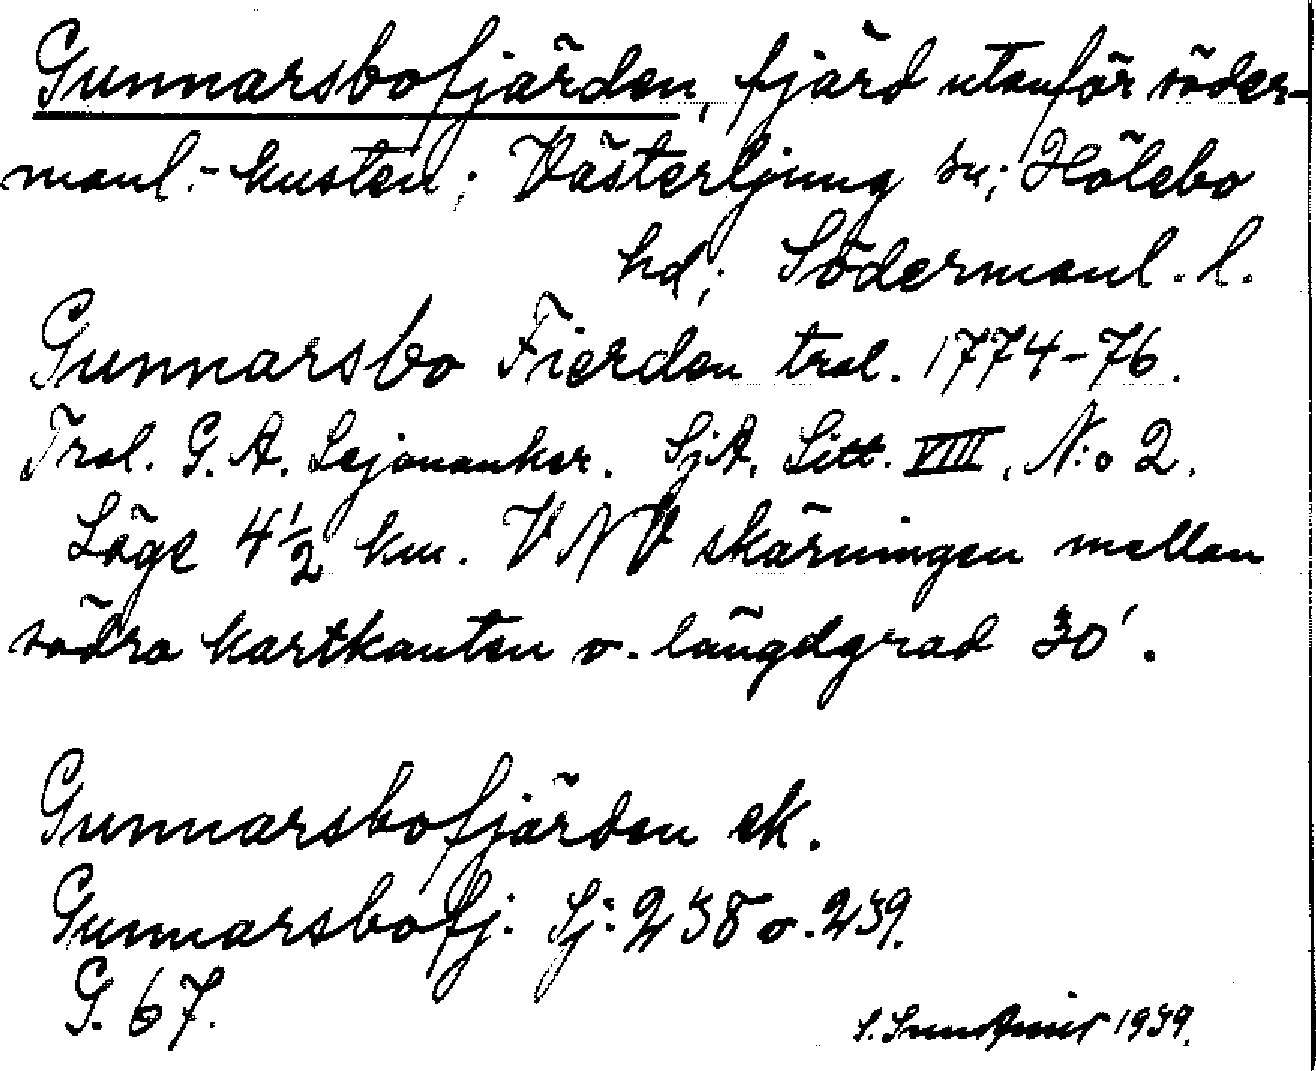 Gunnarsbofjärden, fjärd utanför söder-
manl.-kusten; Västerljung sn; Hölebo
hd; Södermanl. l.
Gunnarsbo Fierden tral. 1774-76.
Tral. G. A. Lejonanker. SjA. Litt. VIII, N:o 2.
Läge 4 1/2 km. VNV skärningen mellan
södra kartkanten o. längdgrad 30'.
Gunnarsbofjärden ek.
Gunnarsbofj. Sj: 238 o. 239.
G. 67.
1939.